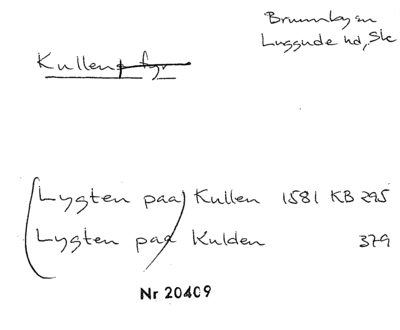 Brunnby sn
Luggude hd, Sk
Kullens fyr
(Lygten paa) Kullen 1581 KB 295
(Lygten paa) Kulden 379
Nr 20409